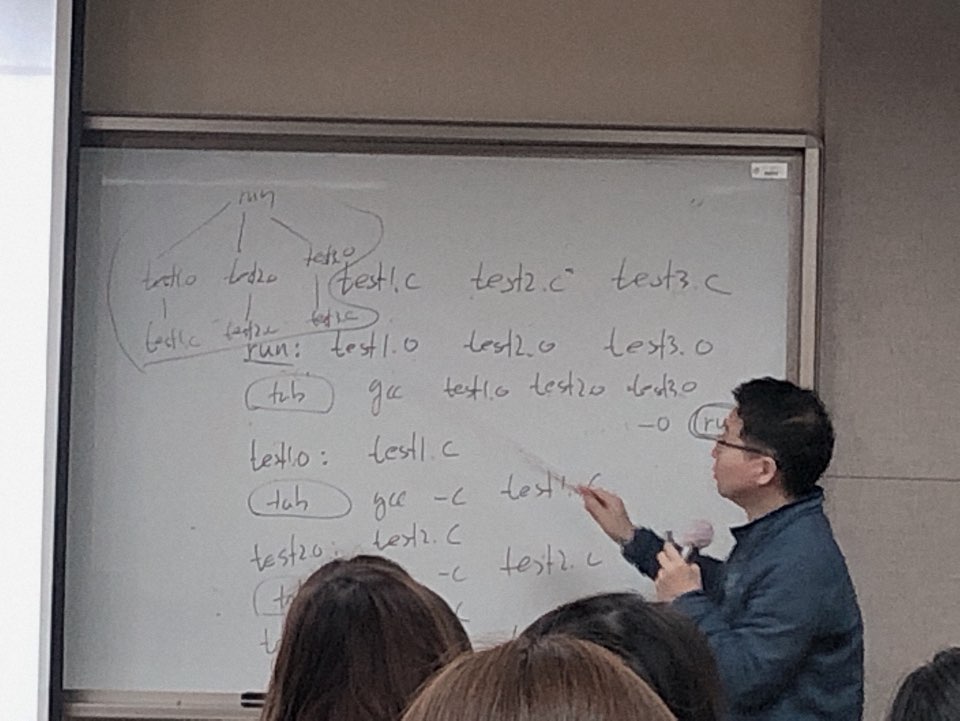 run
test1.o test2.o test3.o
test1.c test2.c test3.c
test1.c test2.c test3.c
run: test1.o test2.o test3.o
tab gcc test1.o test2.o test3.o
-o
test1.o: test1.c
tab gcc -c test1.c
test2.o: test2.c
-c test2.c